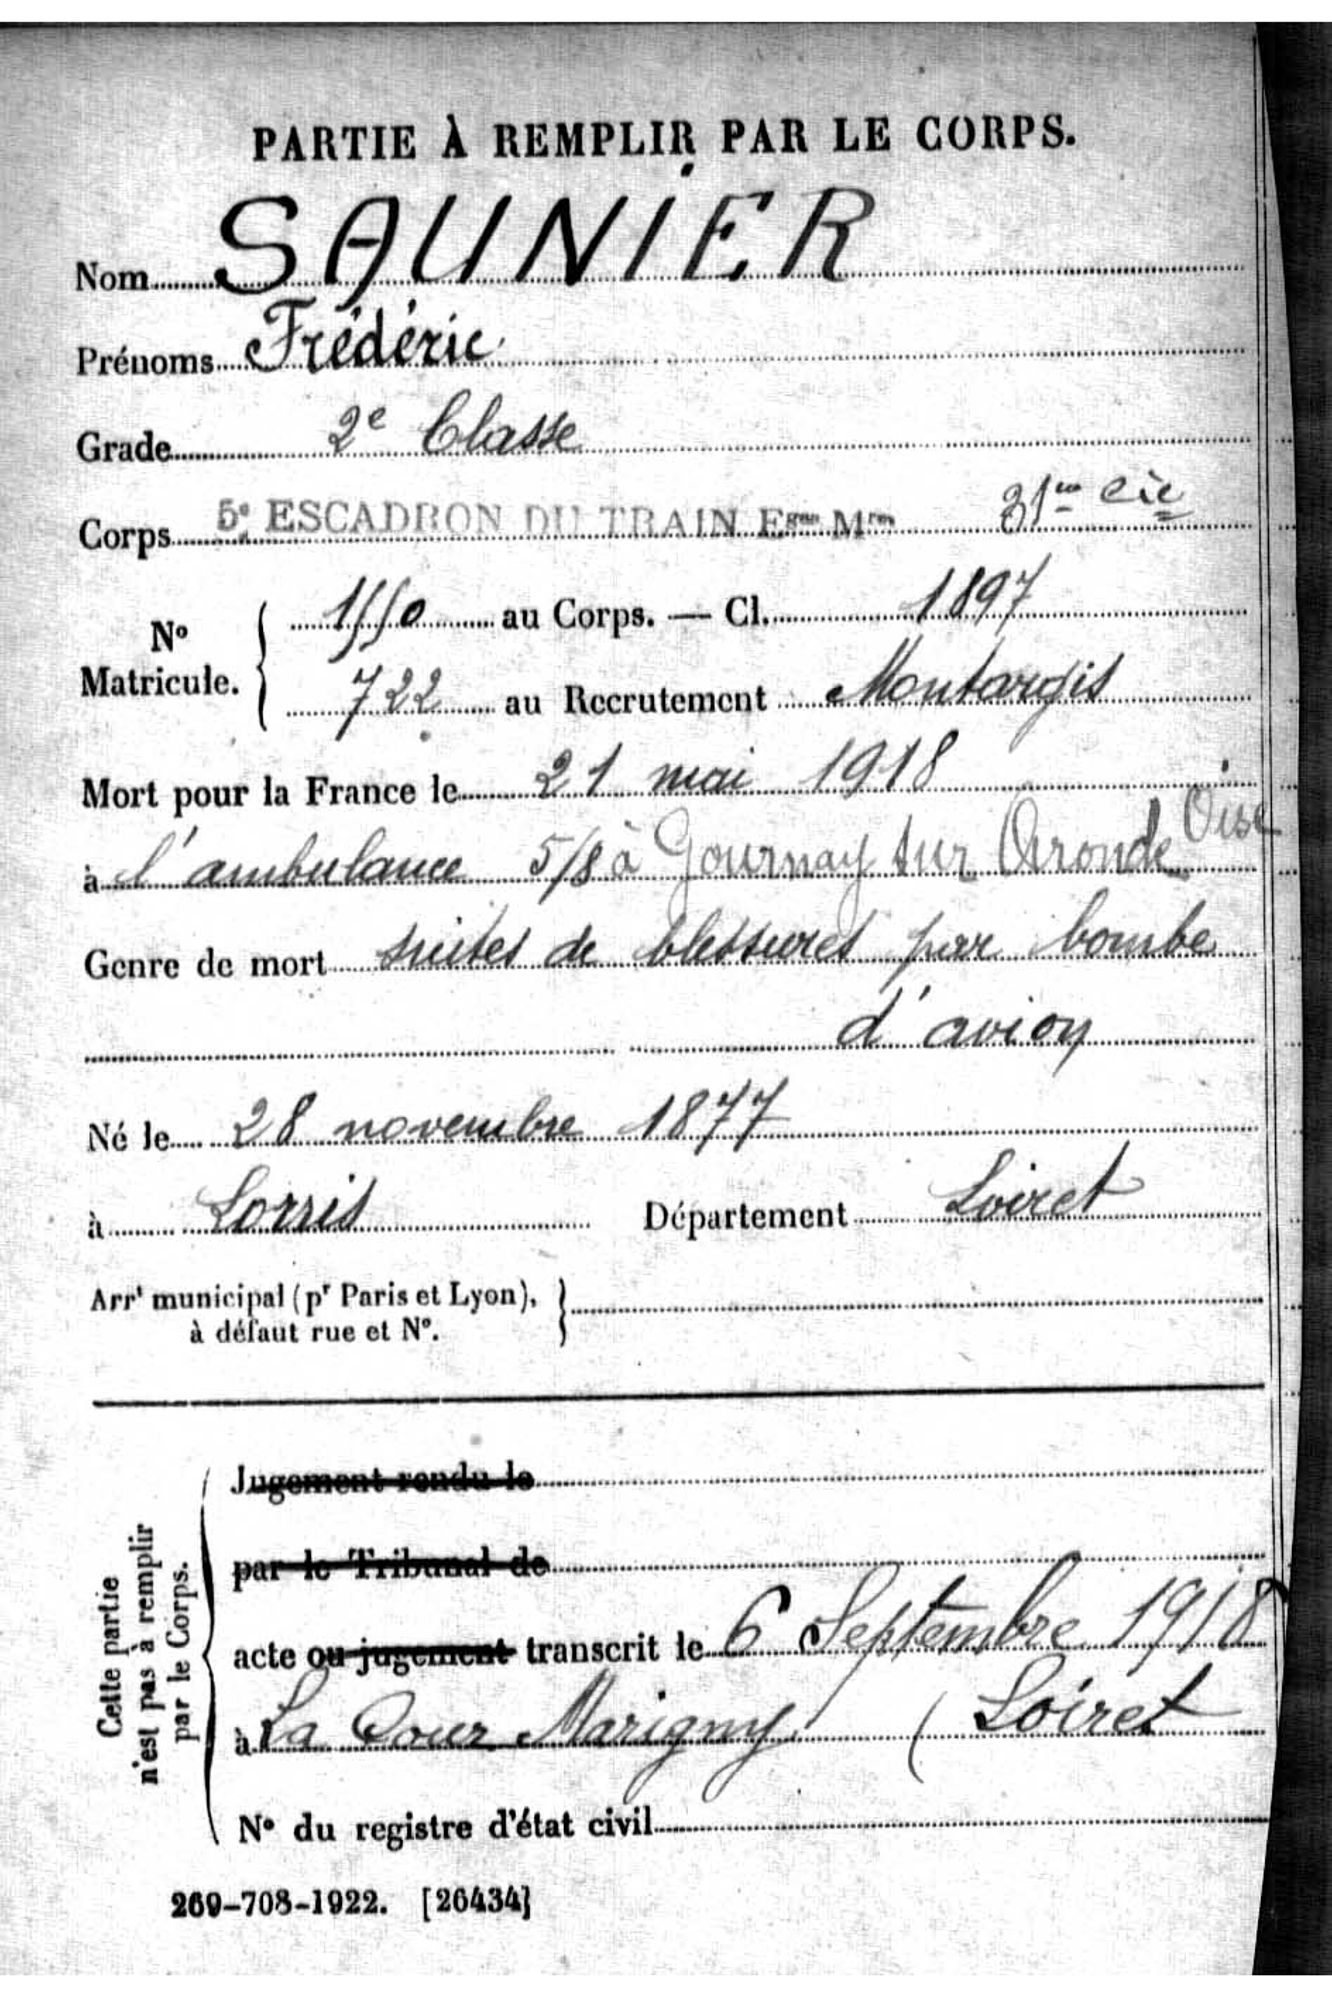 PARTIE À REMPLIR PAR LE CORPS.
Nom SAUNIER
Prénoms Frédéric
Grade 2e Classe
Corps 5e ESCADRON DU TRAIN Esons Mres 31me Cie
No Matricule. 1550 au Corps. — Cl. 1897
722 au Recrutement Montargis
Mort pour la France le 21 mai 1918
à l'ambulance 5/8 à Gournay sur Aronde Oise
Genre de mort suites de blessures par bombe
d'avion
Né le 28 novembre 1877
à Lorris Département Loiret
Arrt municipal (pr Paris et Lyon),
à défaut rue et N°.
Cette partie
n'est pas à remplir
par le Corps.
Jugement rendu le
par le Tribunal de
acte ou jugement transcrit le 6 Septembre 1918
à La Cour Marigny (Loiret
N° du registre d'état civil
269-708-1922. [26434]